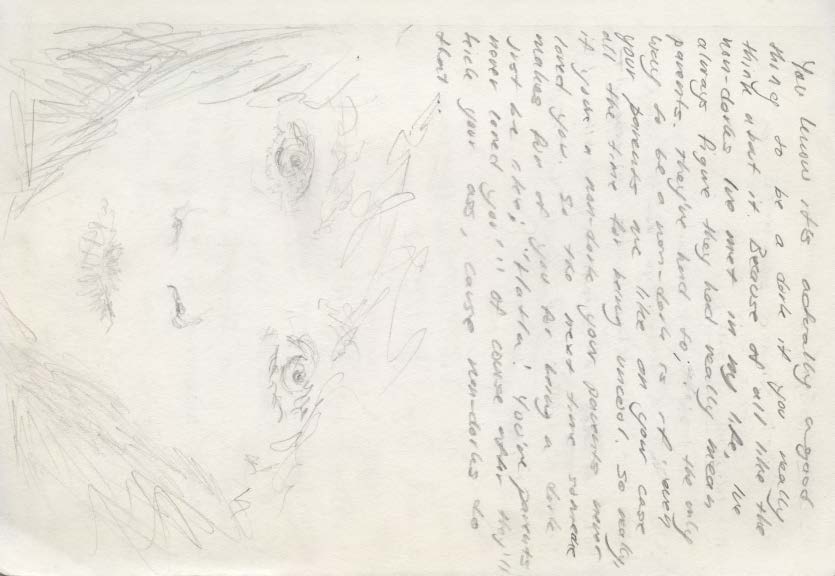 You know it's actually a good
thing to be a dork if you really
think about it. Because of all like the
non-dorks I've met in my life, I've
always figure they had really mean
parents. They've had to; the only
way to be a non-dork is if even
your parents are like on your case
all the time for being uncool. So really,
if you're a non-dork your parents never
loved you. So the next time someone
makes fun of you for being a dork
just be like; "HaHa! You've parents
never loved you!!! Of course after they'll
kick your ass, cause non-dorks do
that...